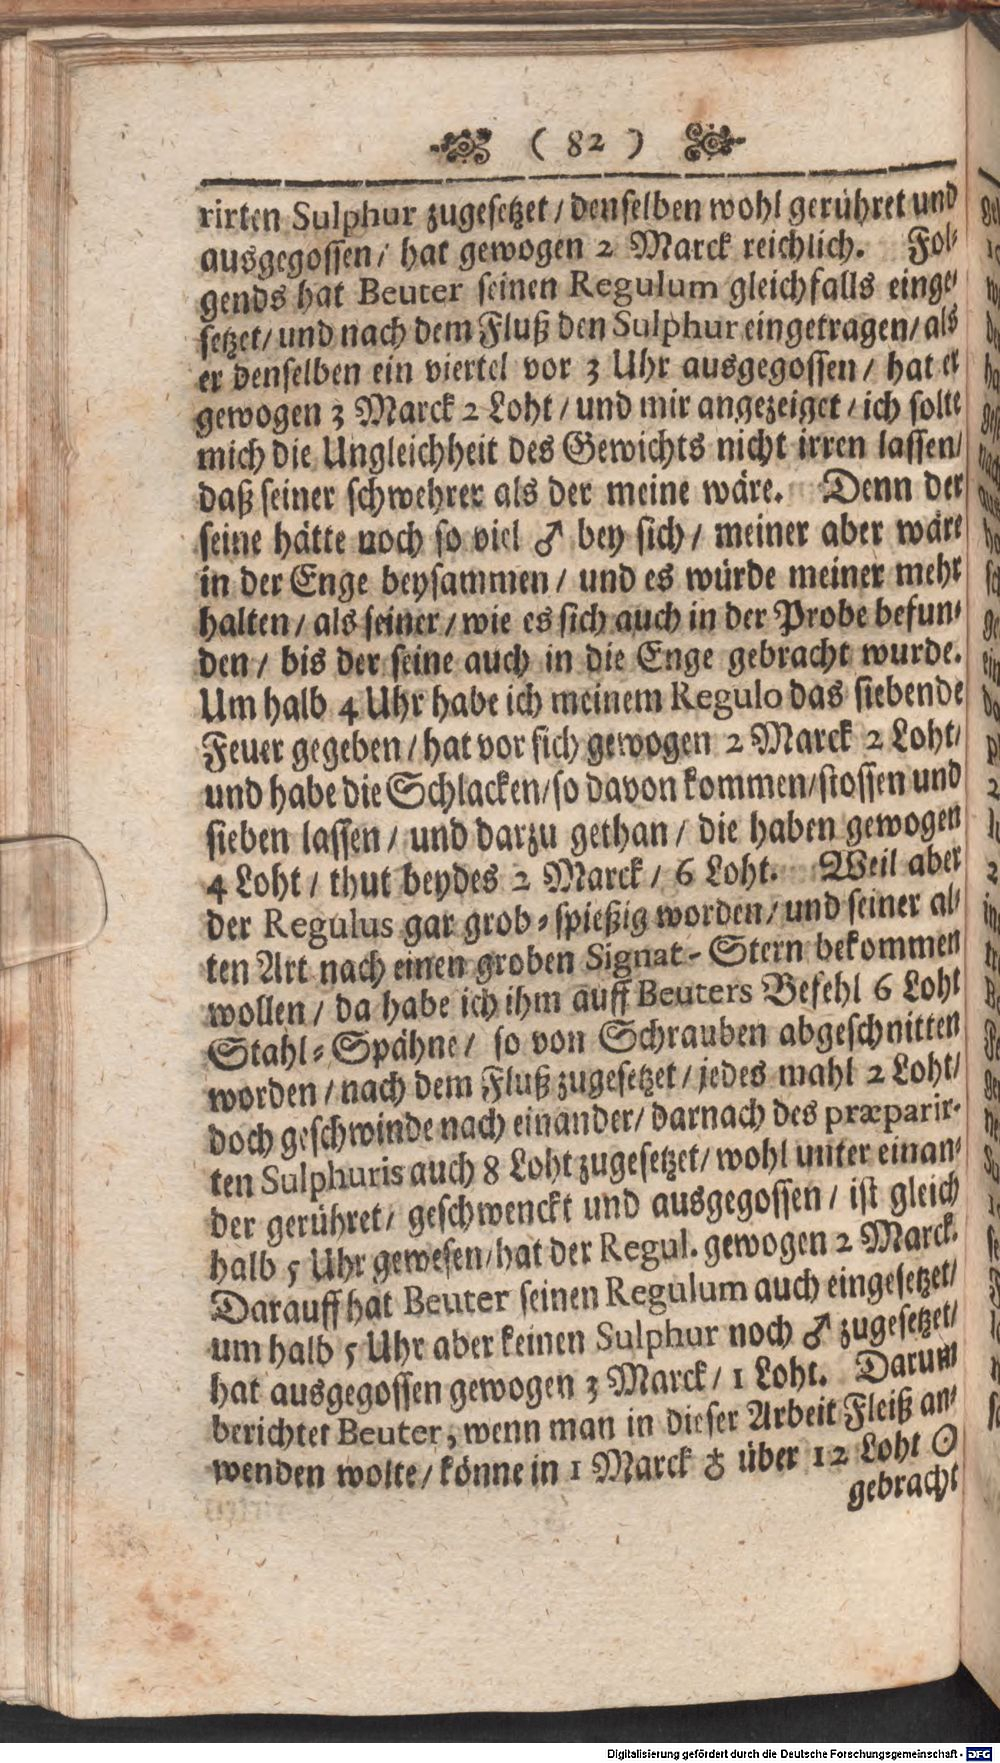 ( 82 )
rirten Sulphur zugesetzet / denselben wohl gerühret und
ausgegossen / hat gewogen 2 Marck reichlich. Fol-
gends hat Beuter seinen Regulum gleichfalls einge-
setzet / und nach dem Fluß den Sulphur eingetragen / als
er denselben ein viertel vor 3 Uhr ausgegossen / hat er
gewogen 3 Marck 2 Loht / und mir angezeiget / ich solte
mich die Ungleichheit des Gewichts nicht irren lassen /
daß seiner schwehrer als der meine wäre. Denn der
seine hätte noch so viel ♂ bey sich / meiner aber wäre
in der Enge beysammen / und es würde meiner mehr
halten / als seiner / wie es sich auch in der Probe befun-
den / bis der seine auch in die Enge gebracht wurde.
Um halb 4 Uhr habe ich meinem Regulo das siebende
Feuer gegeben / hat vor sich gewogen 2 Marck 2 Loht /
und habe die Schlacken / so davon kommen / stossen und
sieben lassen / und darzu gethan / die haben gewogen
4 Loht / thut beydes 2 Marck / 6 Loht. Weil aber
der Regulus gar grob-spießig worden / und seiner al-
ten Art nach einen groben Signat-Stern bekommen
wollen / da habe ich ihm auff Beuters Befehl 6 Loht
Stahl-Spähne / so von Schrauben abgeschnitten
worden / nach dem Fluß zugesetzet / jedes mahl 2 Loht /
doch geschwinde nach einander / darnach des præparir-
ten Sulphuris auch 8 Loht zugesetzet / wohl unter einan-
der gerühret / geschwenckt und ausgegossen / ist gleich
halb 5 Uhr gewesen / hat der Regul. gewogen 2 Marck.
Darauff hat Beuter seinen Regulum auch eingesetzet /
um halb 5 Uhr aber keinen Sulphur noch ♂ zugesetzet /
hat ausgegossen gewogen 3 Marck / 1 Loht. Darum
berichtet Beuter, wenn man in dieser Arbeit Fleiß an-
wenden wolte / könne in 1 Marck ♁ über 12 Loht ☉
gebracht
Digitalisierung gefördert durch die Deutsche Forschungsgemeinschaft - DFG